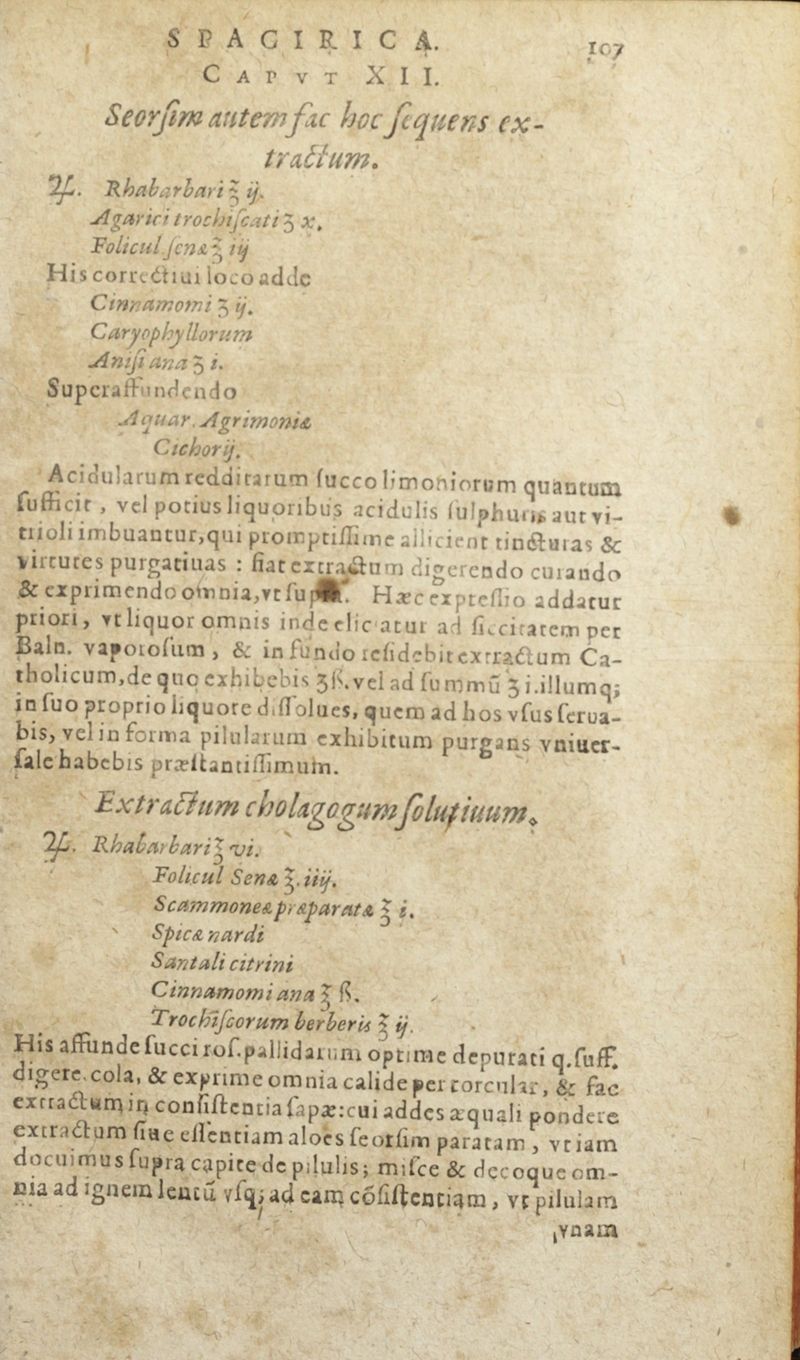 SPAGIRICA. 107
CAPVT XII.
Seorſim autem fac hoc ſequens ex-
tractum.
♃. Rhabarbari ℥ ij.
Agarici trochiſcati ʒ x.
Folicul ſenæ ℥ iij
His correctiui loco adde
Cinnamomi ʒ ij.
Caryophyllorum
Aniſi ana ʒ i.
Superaffundendo
Aquar. Agrimoniæ
Cichorij.
Acidularum redditarum ſucco limoniorum quantum
ſufficit, vel potius liquoribus acidulis ſulphuris aut vi-
trioli imbuantur, qui promptiſſime allicient tincturas &
virtutes purgatiuas : fiat extractum digerendo curando
& exprimendo omnia, vt Hæc expreſſio addatur
priori, vt liquor omnis inde eliceatur ad ſiccitatem per
Baln. vaporoſum, & in fundo reſidebit extractum Ca-
tholicum, de quo exhibebis ʒß. vel ad ſummū ʒ i. illumq;
in ſuo proprio liquore diſſolues, quem ad hos vſus ſerua-
bis, vel in forma pilularum exhibitum purgans vniuer-
ſale habebis præſtantiſſimum.
Extractum cholagogum ſolutiuum.
♃. Rhabarbari ℥ vi.
Folicul Senæ ℥. iiij.
Scammoneæ præparatæ ℥ i.
Spicæ nardi
Santali citrini
Cinnamomi ana ℥ ß.
Trochiſcorum berberis ℥ ij.
His affunde ſucci roſ. pallidarum optime depurati q. ſuff.
digere, cola, & exprime omnia calide per torcular, & fac
extractum in conſiſtentia ſapæ: cui addes æquali pondere
extractum ſiue eſſentiam aloes ſeorſim paratam, vt iam
docuimus ſupra capite de pilulis; miſce & decoque om-
nia ad ignem lentū vſq; ad eam cōſiſtentiam, vt pilulam
vnam